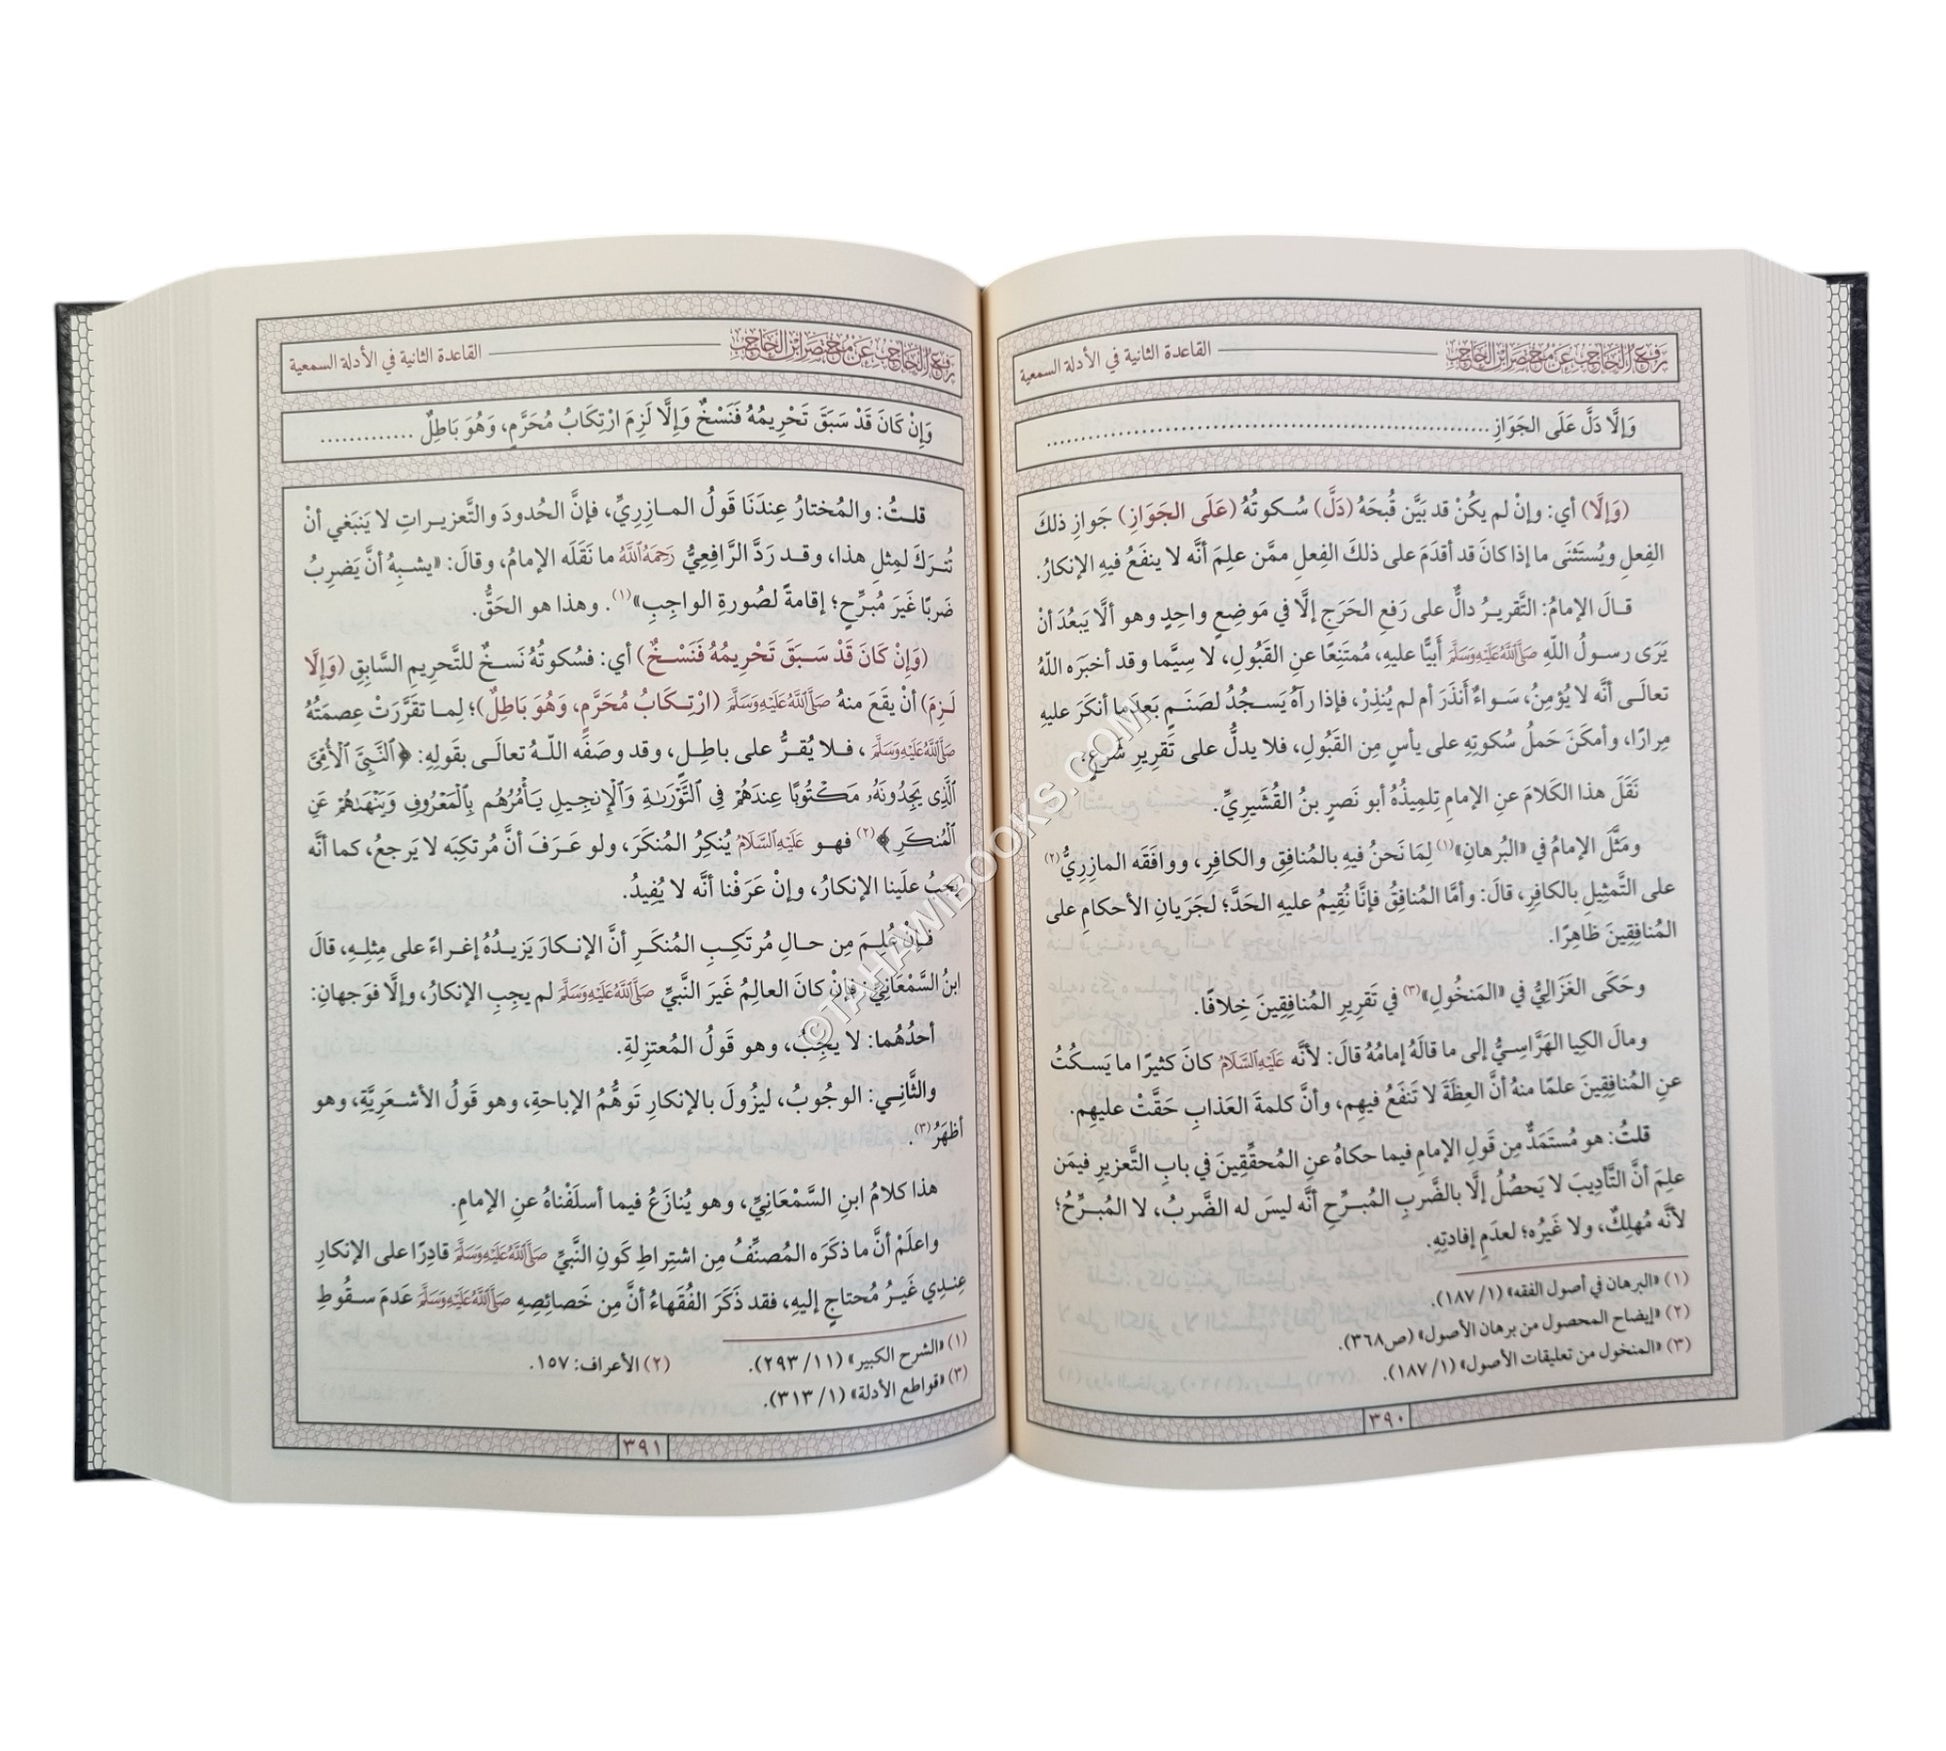 رفع الحاجب عن مختصر ابن الحاجب القاعدة الثانية في الأدلة السمعية
وَإِلَّا دَلَّ عَلَى الجَوَازِ ........................................................
(وَإِلَّا) أي: وإنْ لم يكُنْ قد بيَّن قُبحَهُ (دَلَّ) سُكوتُهُ (عَلَى الجَوَازِ) جَوازِ ذلكَ
الفِعلِ ويُستَثنَى ما إذا كانَ قد أقدَمَ على ذلكَ الفِعلِ ممَّن علِمَ أنَّه لا ينفَعُ فيهِ الإنكارُ.
قالَ الإمامُ: التَّقريرُ دالٌّ على رَفعِ الحَرَجِ إلَّا في مَوضِعٍ واحِدٍ وهو ألَّا يَبعُدَ أنْ
يَرَى رسولُ اللهِ صَلَّى اللَّهُ عَلَيْهِ وَسَلَّمَ أَبيًّا عليهِ، مُمتَنِعًا عنِ القَبُولِ، لا سِيَّما وقد أخبَرَه اللهُ
تعالَى أنَّه لا يُؤمِنُ، سَواءٌ أَنذَرَ أم لم يُنذِرْ، فإذا رآهُ يَسجُدُ لصَنَمٍ بَعدَما أنكَرَ عليهِ
مِرارًا، وأمكَنَ حَملُ سُكوتِهِ على يأسٍ مِن القَبُولِ، فلا يدلُّ على تَقريرِ شَرعٍ،
نَقَلَ هذا الكَلامَ عنِ الإمامِ تِلميذُهُ أبو نَصرٍ بنُ القُشَيرِيِّ.
ومَثَّلَ الإمامُ في «البُرهانِ»(١) لِمَا نَحنُ فيهِ بالمُنافِقِ والكافِرِ، ووافَقَه المازِرِيُّ(٢)
على التَّمثِيلِ بالكافِرِ، قالَ: وأمَّا المُنافِقُ فإنَّا نُقِيمُ عليهِ الحَدَّ؛ لجَرَيانِ الأحكامِ على
المُنافِقِينَ ظاهِرًا.
وحَكَى الغَزَالِيُّ في «المَنخُولِ»(٣) في تَقريرِ المُنافِقِينَ خِلافًا.
ومالَ الكِيا الهَرَّاسِيُّ إلى ما قالَهُ إمامُهُ قالَ: لأنَّه عَلَيْهِ السَّلَامُ كانَ كثيرًا ما يَسكُتُ
عنِ المُنافِقِينَ علمًا منهُ أنَّ العِظَةَ لا تَنفَعُ فيهِم، وأنَّ كلمةَ العَذابِ حَقَّتْ عليهِم.
قلتُ: هو مُستَمَدٌّ مِن قَولِ الإمامِ فيما حكاهُ عنِ المُحقِّقِينَ في بابِ التَّعزيرِ فيمَن
علِمَ أنَّ التَّأدِيبَ لا يَحصُلُ إلَّا بالضَّربِ المُبرِّحِ أنَّه ليسَ له الضَّربُ، لا المُبرِّحُ؛
لأنَّه مُهلِكٌ، ولا غَيرُه؛ لعدَمِ إفادتِهِ.
(١) «البرهان في أصول الفقه» (١/ ١٨٧).
(٢) «إيضاح المحصول من برهان الأصول» (ص٣٦٨).
(٣) «المنخول من تعليقات الأصول» (١/ ١٨٧).
٣٩٠
رفع الحاجب عن مختصر ابن الحاجب القاعدة الثانية في الأدلة السمعية
وَإِنْ كَانَ قَدْ سَبَقَ تَحْرِيمُهُ فَنَسْخٌ وَإِلَّا لَزِمَ ارْتِكَابُ مُحَرَّمٍ، وَهُوَ بَاطِلٌ .............
قلتُ: والمُختارُ عِندَنَا قَولُ المازِرِيِّ، فإنَّ الحُدودَ والتَّعزيراتِ لا يَنبَغي أنْ
تُترَكَ لمِثلِ هذا، وقد رَدَّ الرَّافِعِيُّ رَحِمَهُ اللَّهُ ما نَقَلَه الإمامُ، وقالَ: «يشبِهُ أنَّ يَضرِبُ
ضَربًا غَيرَ مُبرِّحٍ؛ إقامةً لصُورةِ الواجِبِ»(١). وهذا هو الحَقُّ.
(وَإِنْ كَانَ قَدْ سَبَقَ تَحْرِيمُهُ فَنَسْخٌ) أي: فسُكوتُهُ نَسخٌ للتَّحرِيمِ السَّابِقِ (وَإِلَّا
لَزِمَ) أنْ يقَعَ منهُ صَلَّى اللَّهُ عَلَيْهِ وَسَلَّمَ (ارْتِكَابُ مُحَرَّمٍ، وَهُوَ بَاطِلٌ)؛ لِما تقَرَّرَتْ عِصمَتُهُ
صَلَّى اللَّهُ عَلَيْهِ وَسَلَّمَ، فلا يُقرُّ على باطِلٍ، وقد وصَفَه اللهُ تعالَى بقَولِهِ: ﴿ٱلنَّبِيَّ ٱلۡأُمِّيَّ
ٱلَّذِي يَجِدُونَهُۥ مَكۡتُوبًا عِندَهُمۡ فِي ٱلتَّوۡرَىٰةِ وَٱلۡإِنجِيلِ يَأۡمُرُهُم بِٱلۡمَعۡرُوفِ وَيَنۡهَىٰهُمۡ عَنِ
ٱلۡمُنكَرِ﴾(٢) فهو عَلَيْهِ السَّلَامُ يُنكِرُ المُنكَرَ، ولو عَرَفَ أنَّ مُرتكِبَه لا يَرجِعُ، كما أنَّه
يجبُ علَينا الإنكارُ، وإنْ عَرَفْنا أنَّه لا يُفِيدُ.
فإنْ عُلِمَ مِن حالِ مُرتَكِبِ المُنكَرِ أنَّ الإنكارَ يَزيدُهُ إغراءً على مِثلِهِ، قالَ
ابنُ السَّمْعَانِيِّ: فإنْ كانَ العالِمُ غَيرَ النَّبيِّ صَلَّى اللَّهُ عَلَيْهِ وَسَلَّمَ لم يجِبِ الإنكارُ، وإلَّا فوَجهانِ:
أحدُهُما: لا يجِبُ، وهو قَولُ المُعتزِلةِ.
والثَّانِي: الوجُوبُ، ليَزُولَ بالإنكارِ تَوهُّمُ الإباحةِ، وهو قَولُ الأشعَرِيَّةِ، وهو
أظهَرُ(٣).
هذا كلامُ ابنِ السَّمْعَانِيِّ، وهو يُنازَعُ فيما أسلَفْناهُ عنِ الإمامِ.
واعلَمْ أنَّ ما ذكَرَه المُصنِّفُ مِن اشتِراطِ كَونِ النَّبيِّ صَلَّى اللَّهُ عَلَيْهِ وَسَلَّمَ قادِرًا على الإنكارِ
عِندِي غَيرُ مُحتاجٍ إليهِ، فقد ذَكَرَ الفُقَهاءُ أنَّ مِن خَصائِصِهِ صَلَّى اللَّهُ عَلَيْهِ وَسَلَّمَ عَدَمَ سقُوطِ
(١) «الشرح الكبير» (١١/ ٢٩٣). (٢) الأعراف: ١٥٧.
(٣) «قواطع الأدلة» (١/ ٣١٣).
٣٩١
©TAHAWIBOOKS.COM